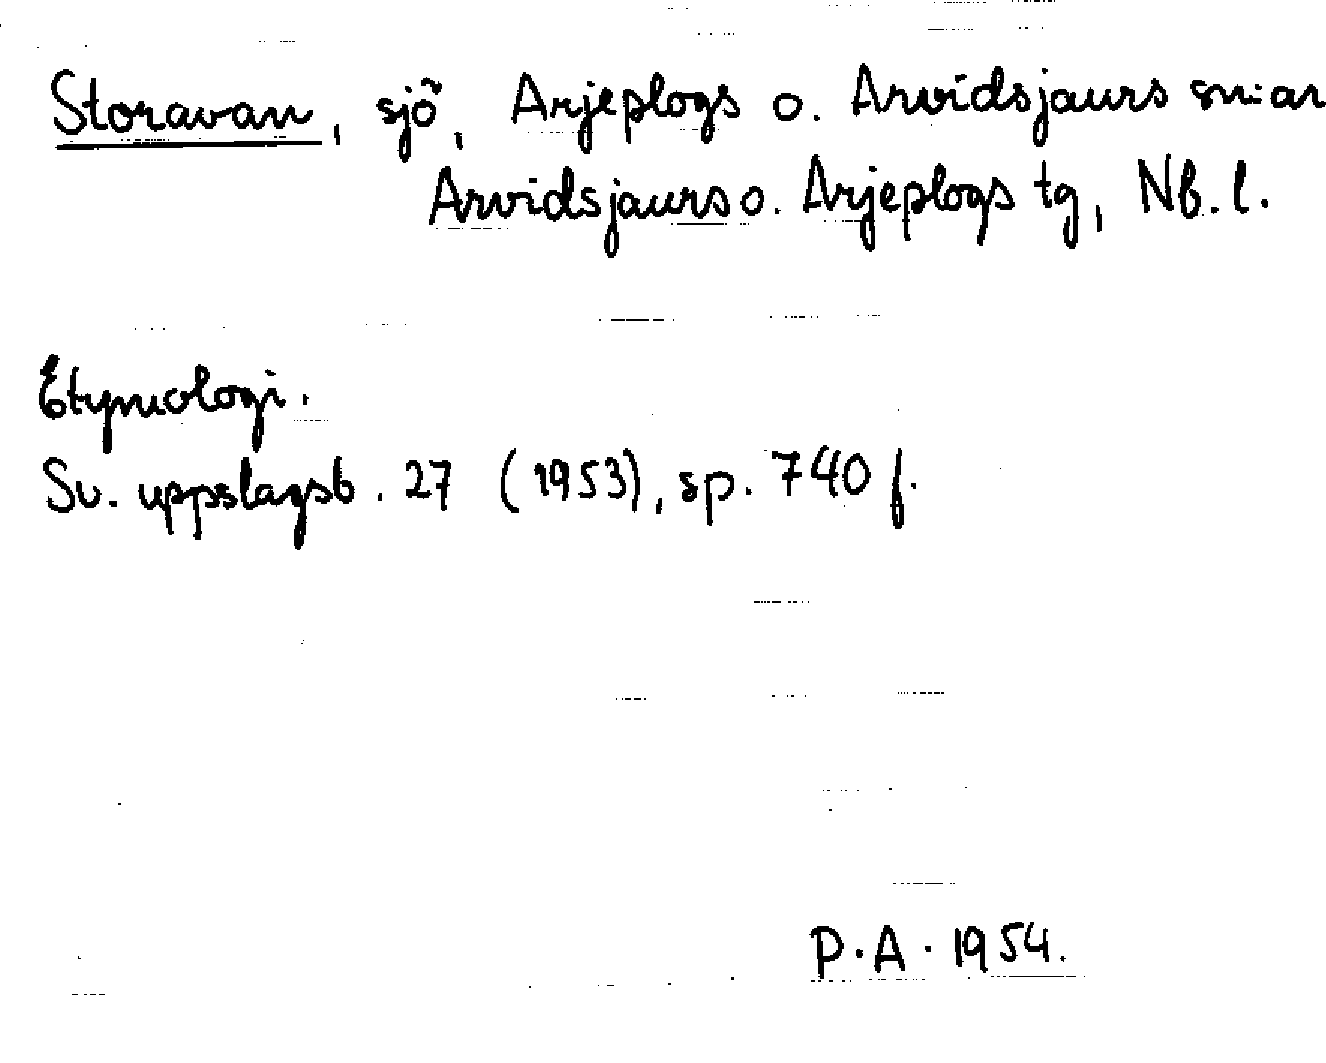 Storavan, sjö, Arjeplogs o. Arvidsjaurs sn:ar
Arvidsjaurs o. Arjeplogs tg, Nb. l.
Etymologi.
Sv. uppslagsb. 27 (1953), sp. 740 f.
P.A. 1954.